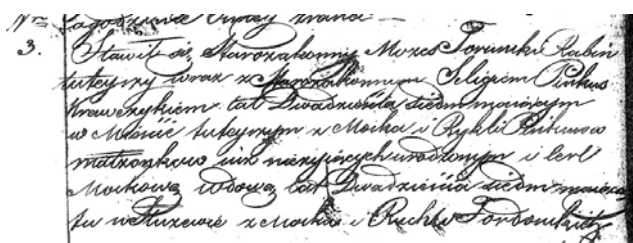 Nro
3. Stawił się Starozakonny Mozes Toruński Rabin
tuteyszy wraz z Starozakonnym Seligiem Pinkus
Krawczykiem lat Dwadzieścia siedm maiącym
w Mieście tuteyszym z Moska i Rykli Pinkusów
małżonków iuż nieżyiących urodzonym i
Moskową wdową lat Dwadzieścia siedm
tu w Służewie z Moska i Ruchli